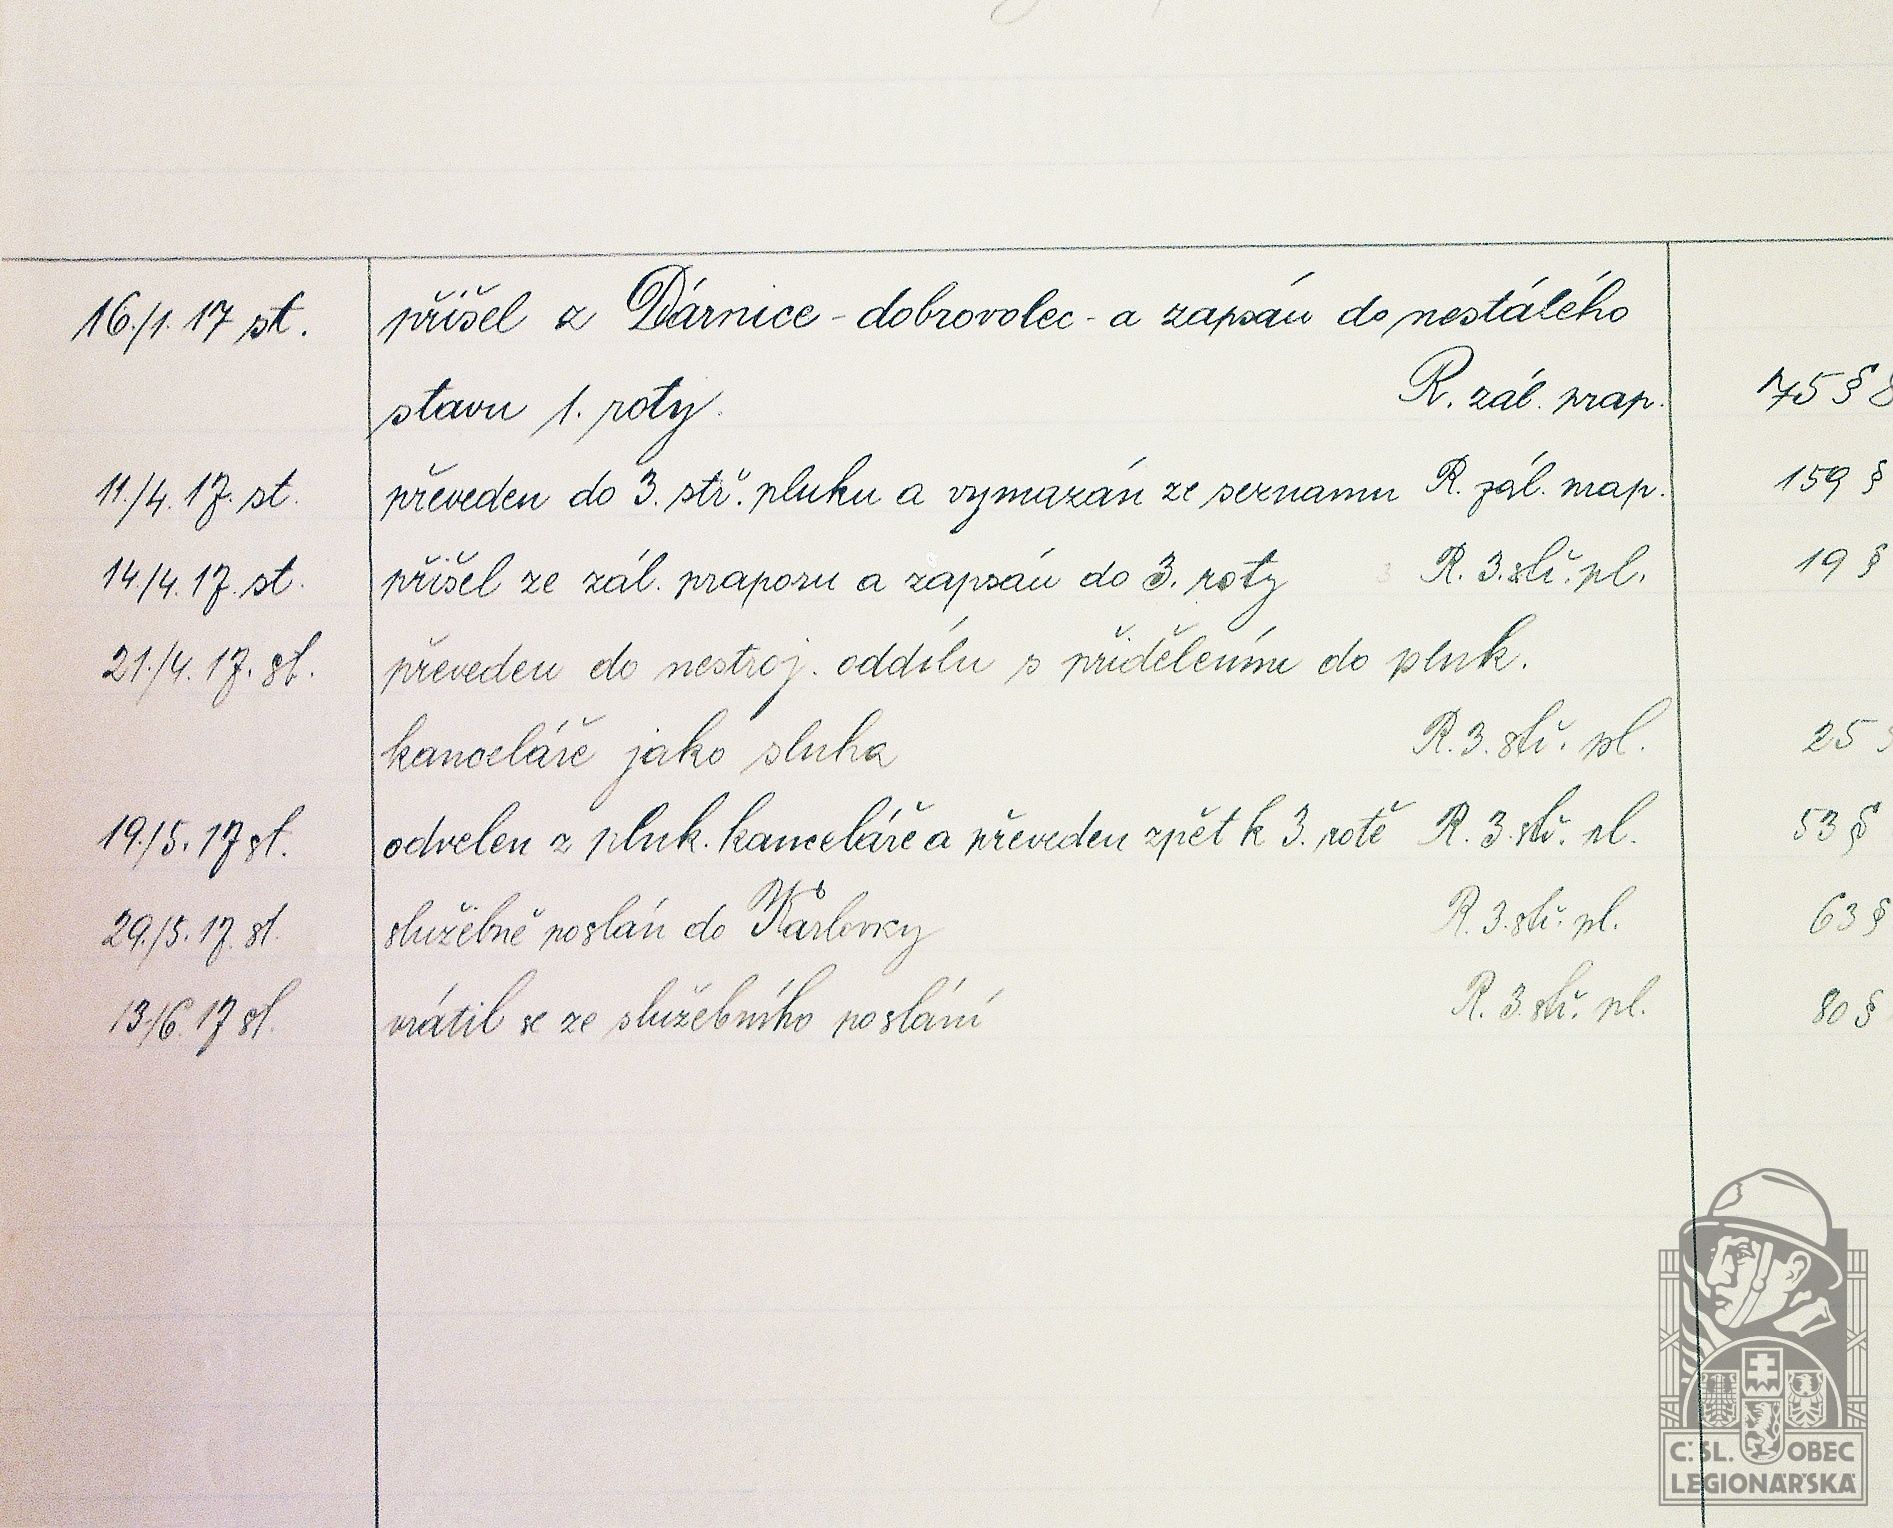 16./1. 17 st. přišel z Dárnice - dobrovolec - a zapsán do nestálého
stavu 1. roty. R. zál. prap. 75 § 8
11./4. 17. st. převeden do 3. stř. pluku a vymazán ze seznamu R. zál. prap. 159 §
14./4. 17. st. přišel ze zál. praporu a zapsán do 3. roty R. 3. stř. pl. 19 §
21./4. 17. st. převeden do nestroj. oddílu s přidělením do pluk.
kanceláře jako sluha R. 3. stř. pl. 25 §
19./5. 17 st. odvelen z pluk. kanceláře a převeden zpět k 3. rotě R. 3. stř. pl. 53 §
29./5. 17. st. služebně poslán do Kärlovky R. 3. stř. pl. 63 §
13./6. 17 st. vrátil se ze služebního poslání R. 3. stř. pl. 80 §
Č. SL. OBEC
LEGIONÁŘSKÁ